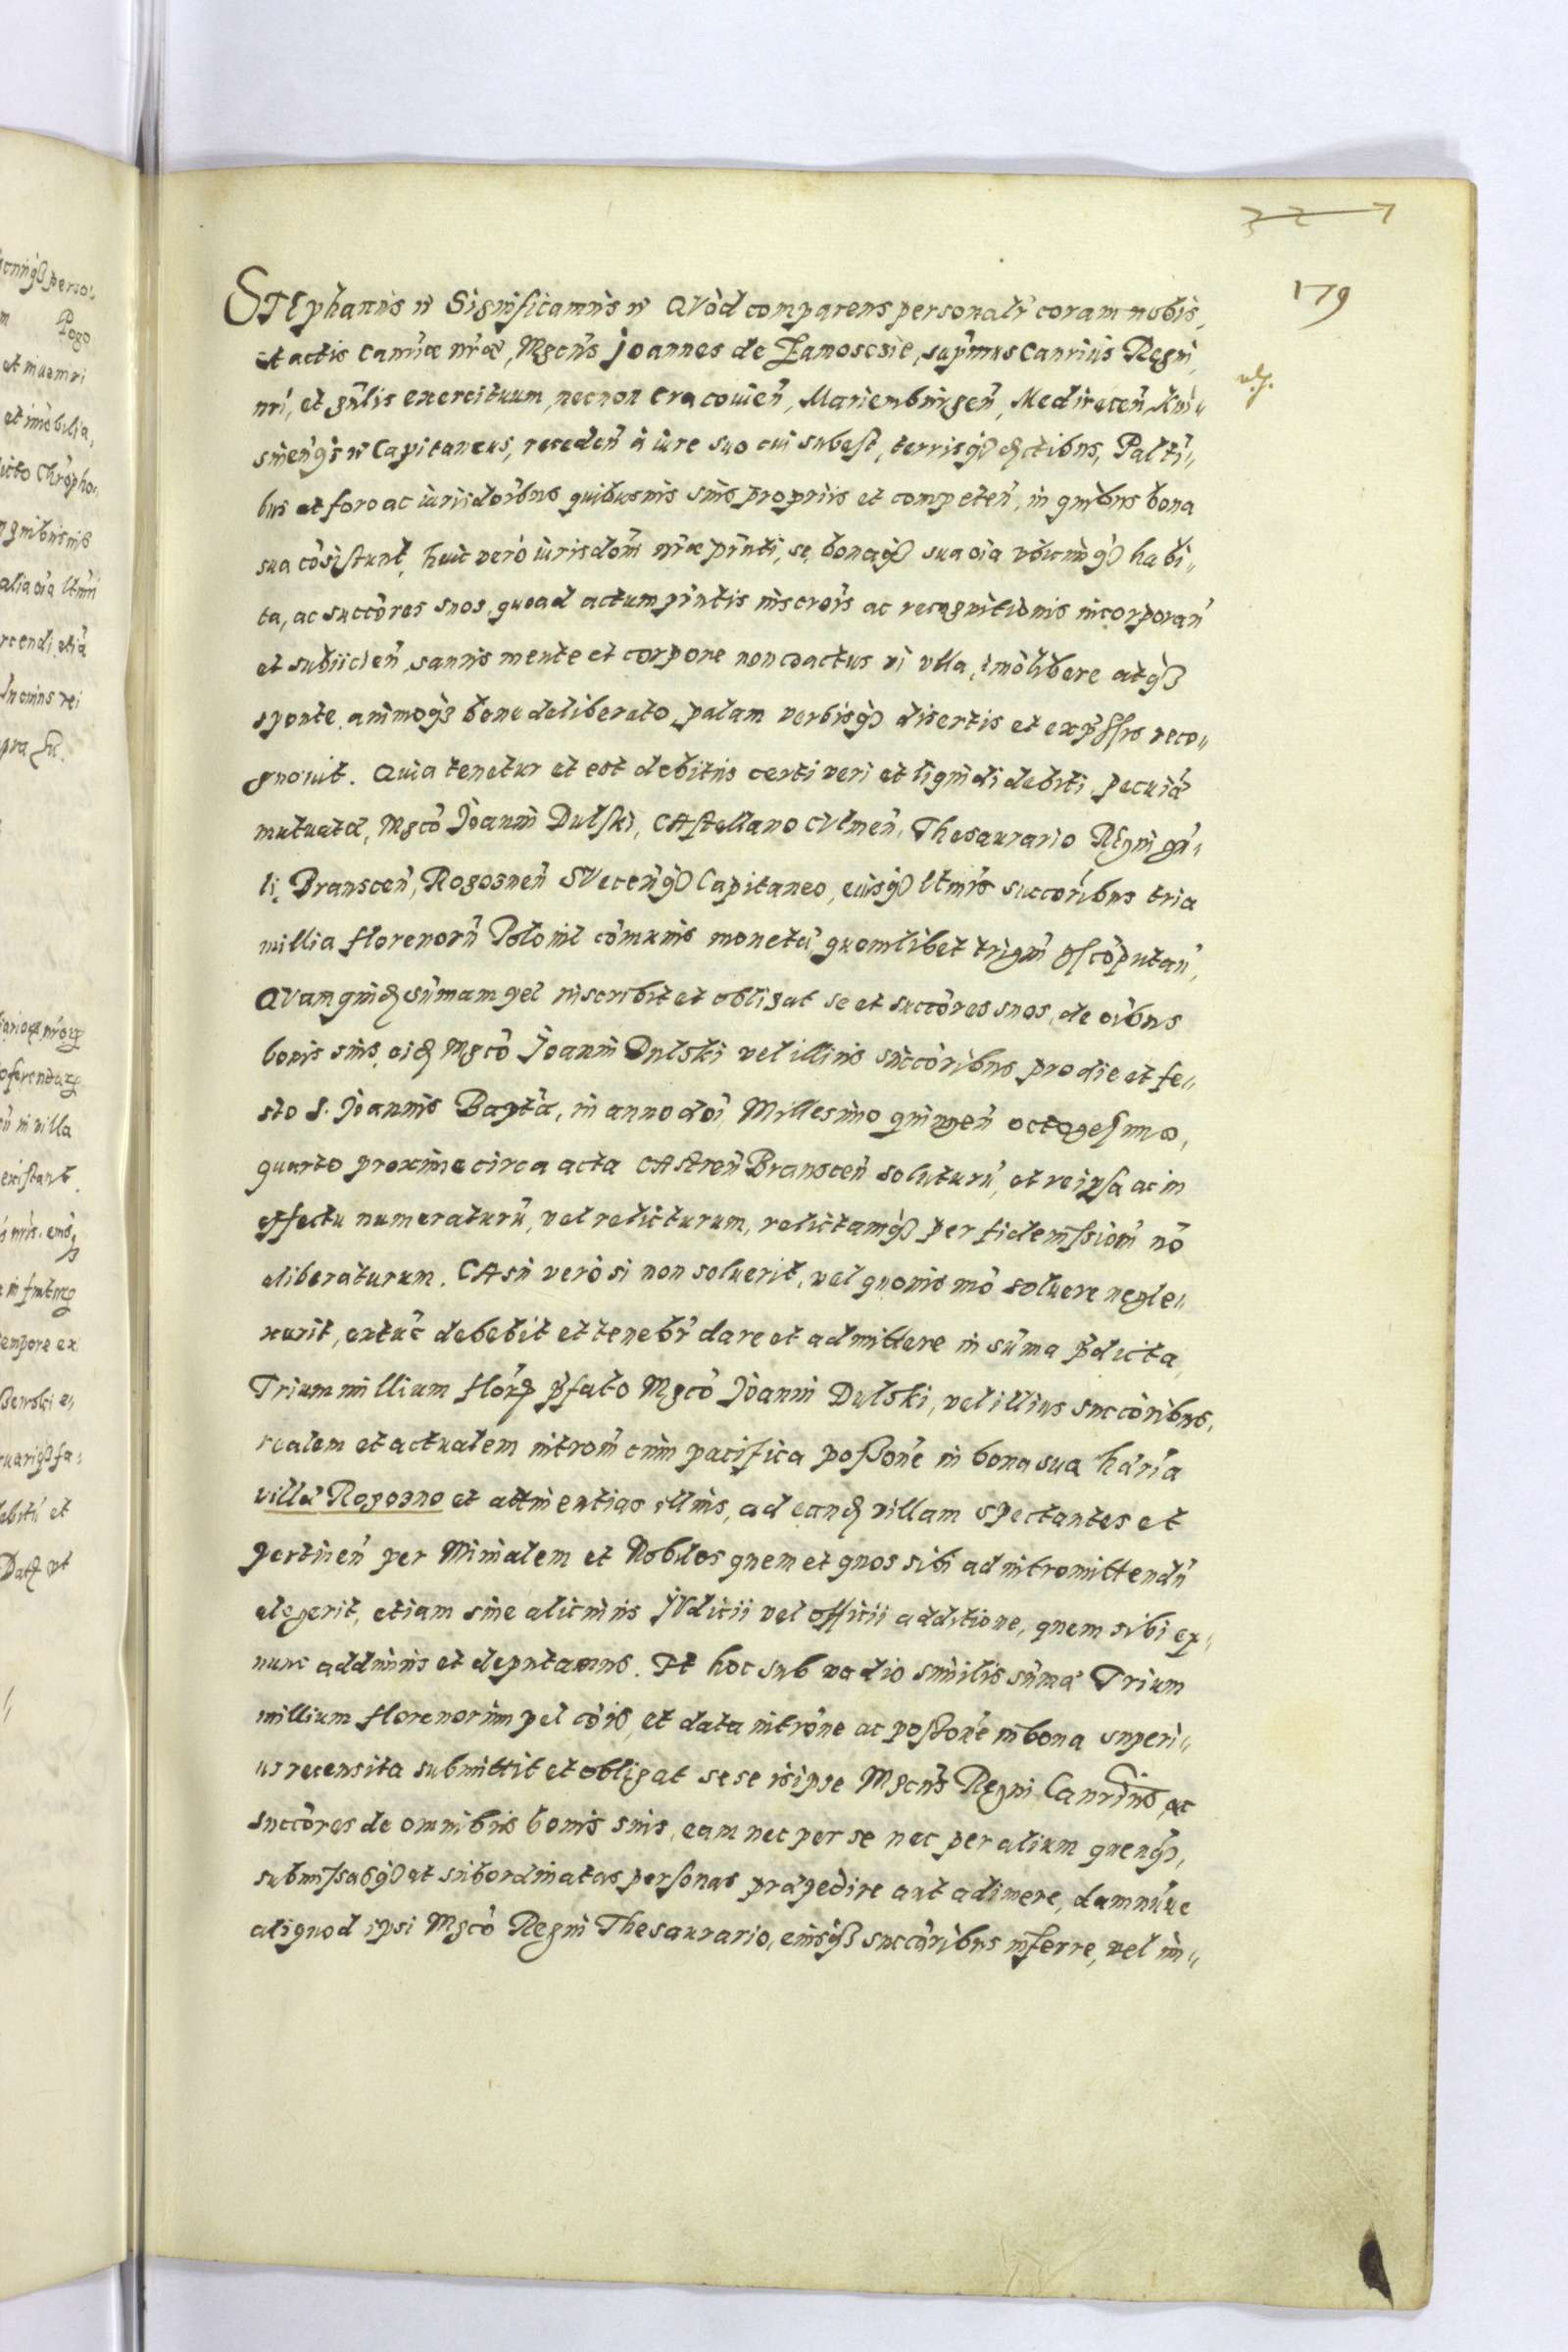 327
179
STEphanus etc Significamus etc QVod comparens personalr̃ coram nobis,
et actis Canc̃æ nr̃æ, Mgcus̃ Joannes de Zamoscsie, supm̃us Canrius Regni
nri, et gñlis exercituum, necnon Cracouieñ, Marienburgeñ, Medireceñ, Kni„
sineñq3 etc Capitaneus, recedeñ à iure suo cui subest, terrisq3 dictibus, Paltñ„
bus et foro ac iurisdoĩbus quibusuis suis propriis et competeñ, in quibus bona
sua cõsistunt, huic verò iurisdoñi nr̃æ pñnti, se, bonaq3 sua oĩa vbicunq3 habi„
ta, ac succores suos, quoad actum pñtis inscrois̃ ac recognitionis incorporañ
et subiicieñ, sanus mente et corpore non coactus vi vlla, imò libere atq3
sponte, animoq3 bene deliberato, palam verbisq3 disertis et exp̃ssis reco„
gnouit. Quia tenetur et est debitus certi veri et liquidi debiti, pecuiã
mutuatæ, Mgco Joanni Dulski, CAstellano CVlmeñ, Thesaurario Regni gñ„
li, Bransceñ, Rogosneñ SVeceñq3 Capitaneo, eiusq3 ltmĩs succoribus tria
millia florenorũ Poloniĩ cõmunis monetæ, quemlibet trigiñ gs cõputañ,
QVamquid sũmam pel inscribit et obligat se et succores suos, de oĩbus
bonis suis, eid Mgco Joanni Dulski vel illius succoribus pro die et fe„
sto S. Joannis Baptæ, in anno doĩ Millesimo quingeñ octogesimo,
quarto proxime circa acta CAstreñ Bransceñ soluturũ, et reipsa ac in
effectu numeraturũ, vel relicturum, relictamq3 per fideiussioñ nõ
eliberaturum. CAsu verò si non soluerit, vel quouis mõ soluere negle„
xerit, extũc debebit et tenebr̃ dare et admittere in sũma pdicta
Trium millium flor pfato Mgco Joanni Dulski, vel illius succoribus,
realem et actualem introm̃ cum pacifica posßone in bona sua hæria
villã Rogozno et attinentias illius, ad eand villam spectantes et
pertineñ per Minialem et Nobiles quem et quos sibi ad intromittendũ
elegerit, etiam sine alicuius JVdicii vel officii additione, quem sibi ex„
nunc addimus et deputamus. Et hoc sub vadio similis sũmæ Trium
millium florenorum pel cõis, et data introne ac possone in bona superi„
us recensita submittit et obligat sese isipse Mgcus Regni Canrius, ac
succores de omnibus bonis suis, eam nec per se nec per alium quenq3,
submissasq3 et subordinatas personas præpedire aut adimere, damnũue
aliquod ipsi Mgco Regni Thesaurario, eiusq3 succoribus inferre, vel in„